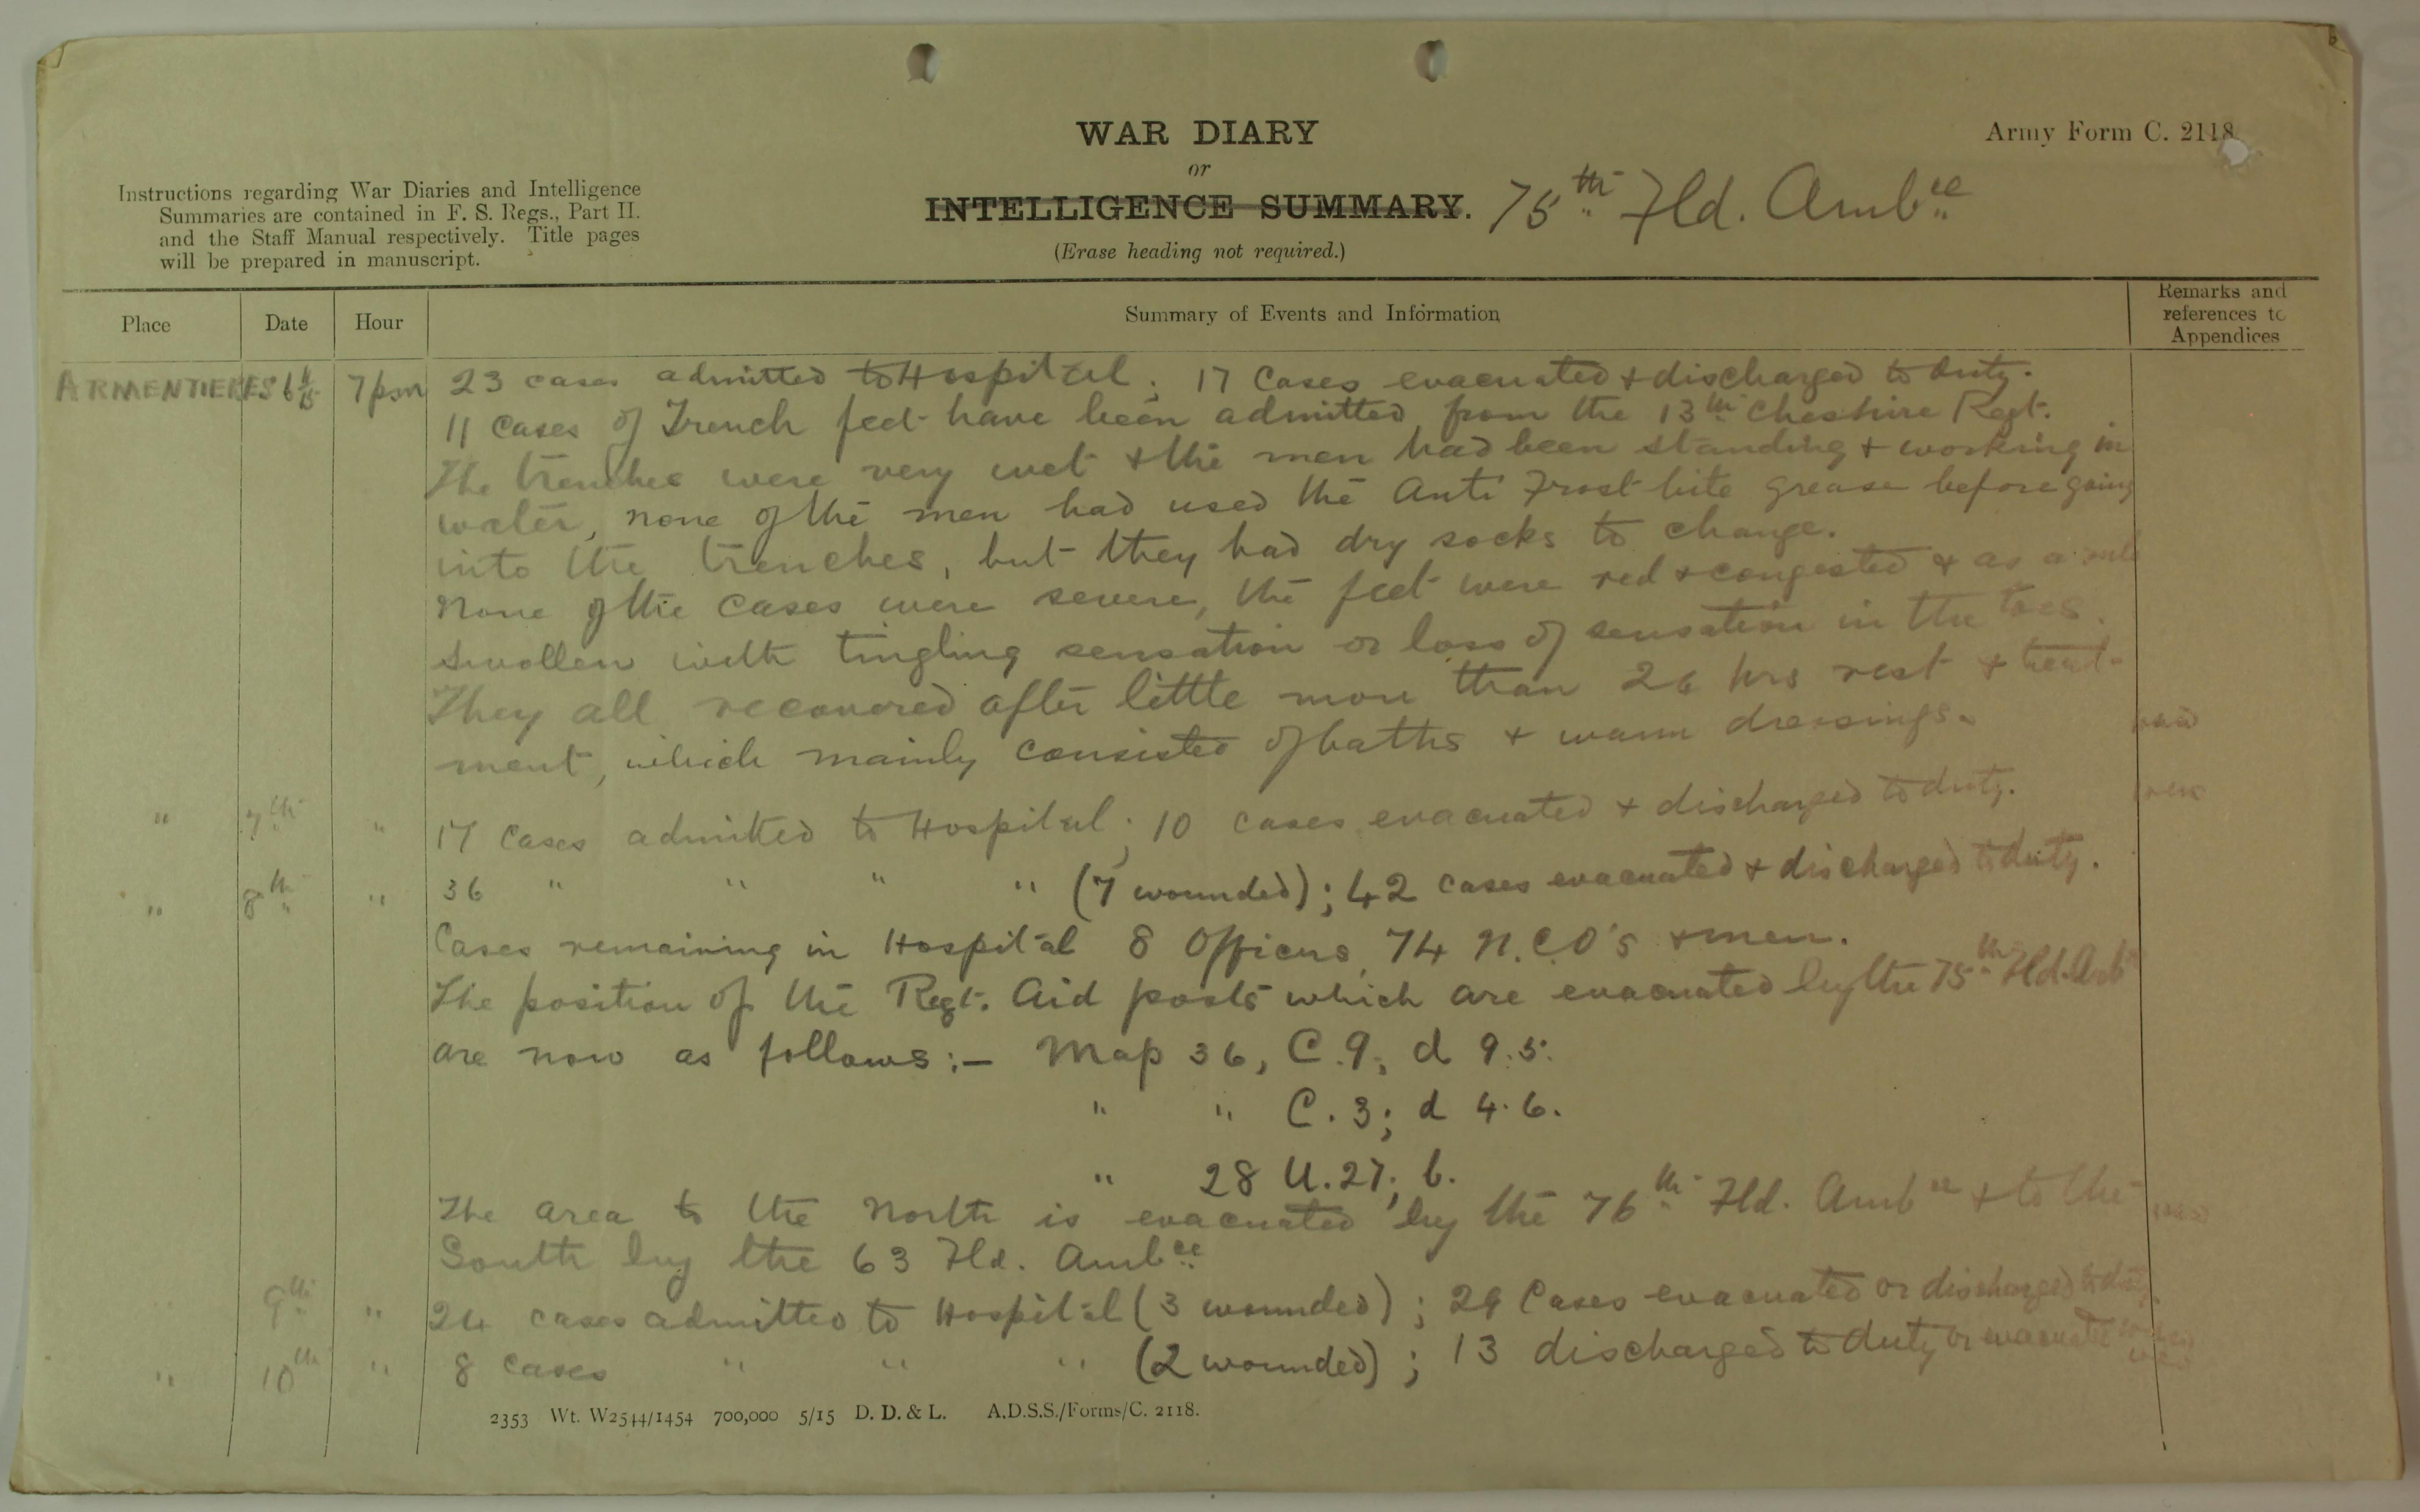 WAR DIARY
or
INTELLIGENCE SUMMARY.
(Erase heading not required.)
75th Fld. Ambce
Army Form C. 2118.
Instructions regarding War Diaries and Intelligence
Summaries are contained in F. S. Regs., Part II.
and the Staff Manual respectively. Title pages
will be prepared in manuscript.
Place Date Hour Summary of Events and Information Remarks and references to Appendices
ARMENTIERES 6 7 pm 23 cases admitted to Hospital; 17 Cases evacuated & discharged to duty.
11 Cases of Trench feet have been admitted from the 13th Cheshire Regt.
The trenches were very wet & the men had been standing & working in
water, none of the men had used the Anti Frost bite grease before going
into the trenches, but they had dry socks to change.
None of the cases were severe, the feet were red & congested & as a rule
swollen with tingling sensation or loss of sensation in the toes.
They all recovered after little more than 24 hrs rest & treat-
ment, which mainly consisted of baths & warm dressings.
" 7th " 17 Cases admitted to Hospital; 10 cases evacuated & discharged to duty.
" 8th " 36 " " " " (7 wounded); 42 cases evacuated & discharged to duty.
Cases remaining in Hospital 8 Officers, 74 N.C.O's & men.
The position of the Regt. Aid posts which are evacuated by the 75th Fld. Amb
are now as follows:— Map 36, C.9; d 9.5.
" " C.3; d 4.6.
" 28 U.27; b.
The area to the North is evacuated by the 76th Fld. Ambce & to the
South by the 63 Fld. Ambce
" 9th " 24 cases admitted to Hospital (3 wounded); 29 Cases evacuated or discharged to duty.
" 10th " 8 cases " " " (2 wounded); 13 discharged to duty or evacuated
2353 Wt. W2544/1454 700,000 5/15 D. D. & L. A.D.S.S./Forms/C. 2118.